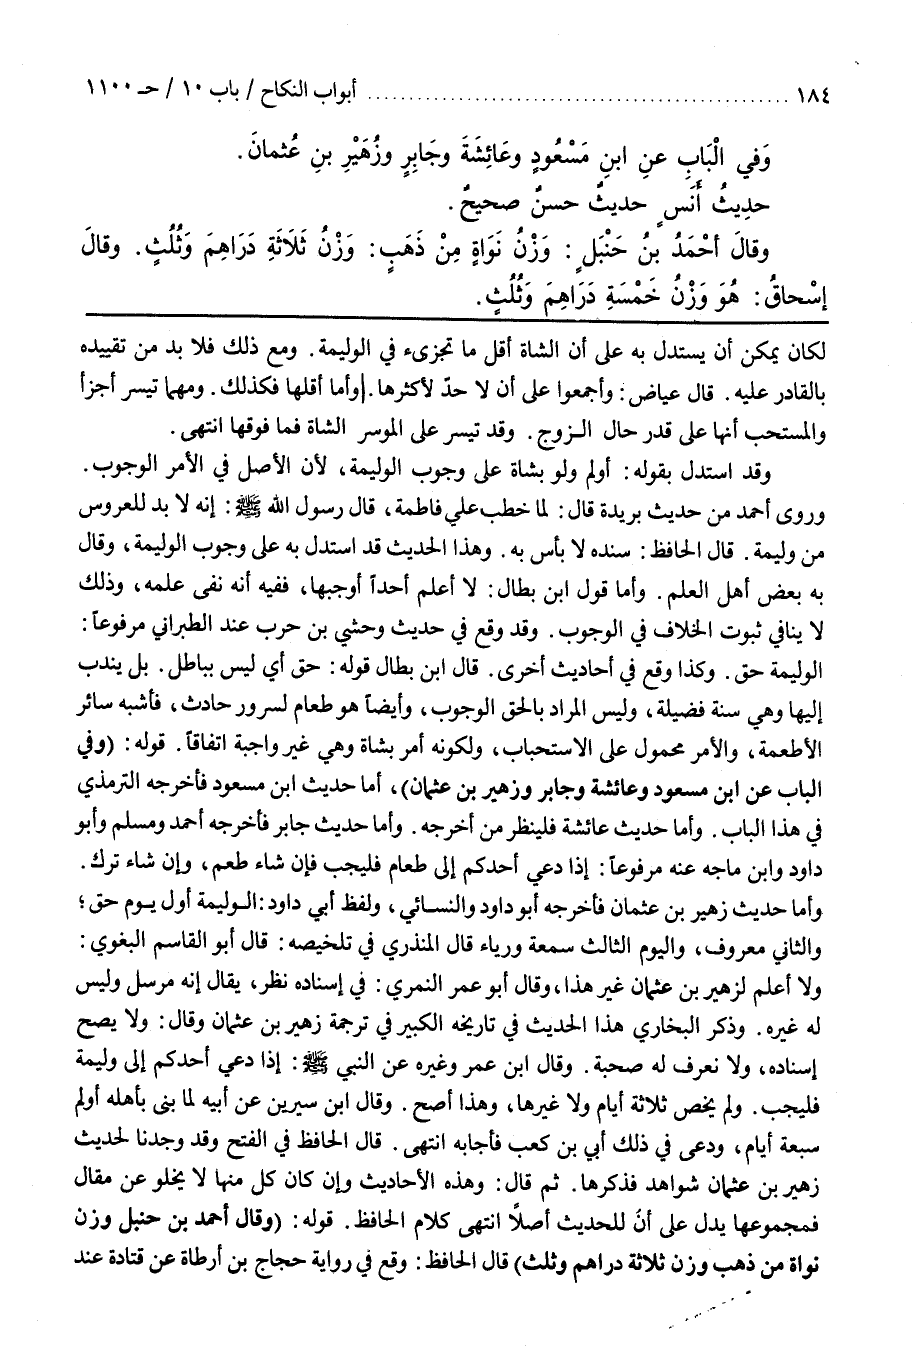 ١٨٤ ........................................ أبواب النكاح / باب ١٠ / حـ ١١٠٠
وَفي الْبَابِ عنِ ابنِ مَسْعُودٍ وعَائِشَةَ وجَابِرٍ وزُهَيْرِ بنِ عُثمانَ.
حديثُ أَنَسٍ حديثٌ حسنٌ صحيحٌ.
وقالَ أحْمَدُ بنُ حَنْبَلٍ: وَزْنُ نَوَاةٍ مِنْ ذَهَبٍ: وَزْنُ ثَلَاثَةِ دَرَاهِمَ وَثُلُثٍ. وقالَ
إسْحاقُ: هُوَ وَزْنُ خَمْسَةِ دَرَاهِمَ وَثُلُثٍ.
لكان يمكن أن يستدل به على أن الشاة أقل ما تجزىء في الوليمة. ومع ذلك فلا بد من تقييده
بالقادر عليه. قال عياض: وأجمعوا على أن لا حدّ لأكثرها. وأما أقلها فكذلك. ومهما تيسر أجزأ
والمستحب أنها على قدر حال الـزوج. وقد تيسر على الموسر الشاة فما فوقها انتهى.
وقد استدل بقوله: أولم ولو بشاة على وجوب الوليمة، لأن الأصل في الأمر الوجوب.
وروى أحمد من حديث بريدة قال: لما خطب علي فاطمة، قال رسول الله ﷺ: إنه لا بد للعروس
من وليمة. قال الحافظ: سنده لا بأس به. وهذا الحديث قد استدل به على وجوب الوليمة، وقال
به بعض أهل العلم. وأما قول ابن بطال: لا أعلم أحداً أوجبها، ففيه أنه نفى علمه، وذلك
لا ينافي ثبوت الخلاف في الوجوب. وقد وقع في حديث وحشي بن حرب عند الطبراني مرفوعاً:
الوليمة حق. وكذا وقع في أحاديث أخرى. قال ابن بطال قوله: حق أي ليس بباطل. بل يندب
إليها وهي سنة فضيلة، وليس المراد بالحق الوجوب، وأيضاً هو طعام لسرور حادث، فأشبه سائر
الأطعمة، والأمر محمول على الاستحباب، ولكونه أمر بشاة وهي غير واجبة اتفاقاً. قوله: (وفي
الباب عن ابن مسعود وعائشة وجابر وزهير بن عثمان)، أما حديث ابن مسعود فأخرجه الترمذي
في هذا الباب. وأما حديث عائشة فلينظر من أخرجه. وأما حديث جابر فأخرجه أحمد ومسلم وأبو
داود وابن ماجه عنه مرفوعاً: إذا دعي أحدكم إلى طعام فليجب فإن شاء طعم، وإن شاء ترك.
وأما حديث زهير بن عثمان فأخرجه أبو داود والنسائي، ولفظ أبي داود: الـوليمة أول يـوم حق؛
والثاني معروف، واليوم الثالث سمعة ورياء قال المنذري في تلخيصه: قال أبو القاسم البغوي:
ولا أعلم لزهير بن عثمان غير هذا، وقال أبو عمر النمري: في إسناده نظر، يقال إنه مرسل وليس
له غيره. وذكر البخاري هذا الحديث في تاريخه الكبير في ترجمة زهير بن عثمان وقال: ولا يصح
إسناده، ولا نعرف له صحبة. وقال ابن عمر وغيره عن النبي ﷺ: إذا دعي أحدكم إلى وليمة
فليجب. ولم يخص ثلاثة أيام ولا غيرها، وهذا أصح. وقال ابن سيرين عن أبيه لما بنى بأهله أولم
سبعة أيام، ودعى في ذلك أبي بن كعب فأجابه انتهى. قال الحافظ في الفتح وقد وجدنا لحديث
زهير بن عثمان شواهد فذكرها. ثم قال: وهذه الأحاديث وإن كان كل منها لا يخلو عن مقال
فمجموعها يدل على أنّ للحديث أصلاً انتهى كلام الحافظ. قوله: (وقال أحمد بن حنبل وزن
نواة من ذهب وزن ثلاثة دراهم وثلث) قال الحافظ: وقع في رواية حجاج بن أرطاة عن قتادة عند